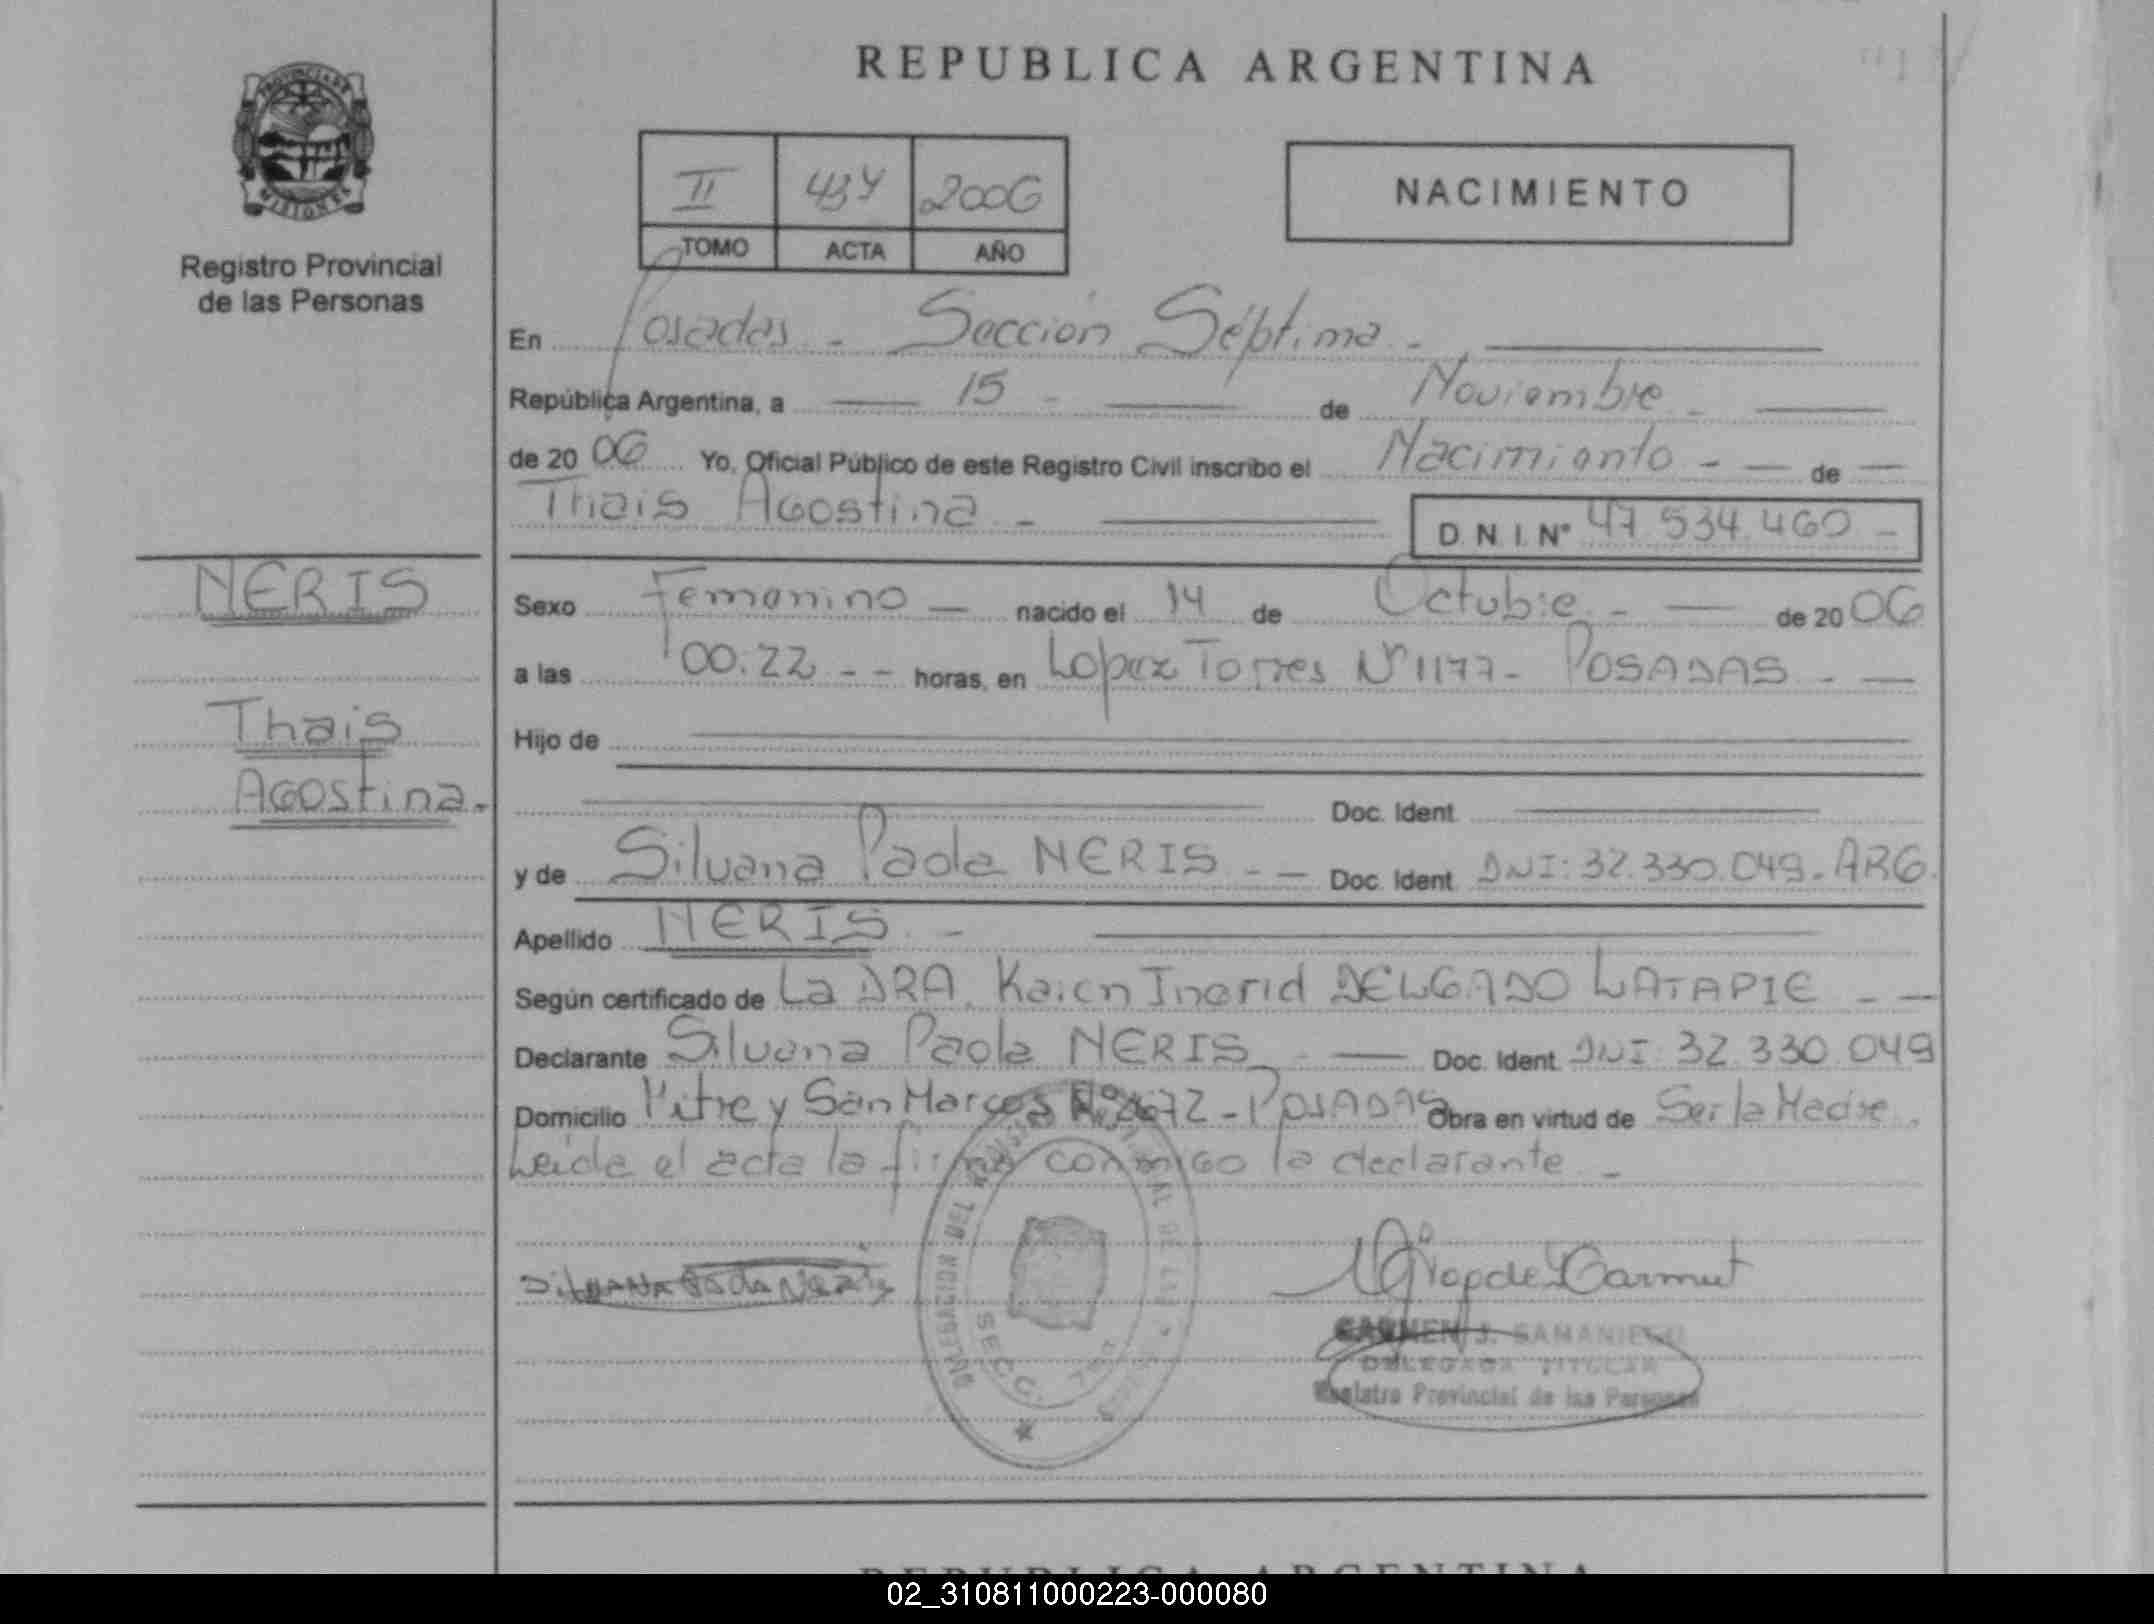 REPUBLICA ARGENTINA
PROVINCIA DE
MISIONES
Registro Provincial
de las Personas
II 434 2006
TOMO ACTA AÑO
NACIMIENTO
En Posadas - Sección Séptima -
República Argentina, a 15 - de Noviembre -
de 20 06 Yo, Oficial Público de este Registro Civil inscribo el Nacimiento - - de -
Thais Agostina - D.N.I. N° 47.534.460 -
NERIS
Thais
Agostina.
Sexo Femenino - nacido el 14 de Octubre - - de 20 06
a las 00:22 - - horas, en Lopez Torres N° 1177 - POSADAS - -
Hijo de
Doc. Ident.
y de Silvana Paola NERIS - - Doc. Ident. DNI: 32.330.049 - ARG.
Apellido NERIS -
Según certificado de La DRA. Karen Ingrid DELGADO LATAPIE - -
Declarante Silvana Paola NERIS - Doc. Ident. DNI 32.330.049
Domicilio Mitre y San Marcos - POSADAS Obra en virtud de Ser la Madre.
Leída el acta la firma conmigo la declarante -
Silvana Paola Neris
DELEGACION DEL REGISTRO PROVINCIAL DE LAS PERSONAS
SECC. 7ma
CARMEN J. SAMANIEGO
DELEGADA TITULAR
Registro Provincial de las Personas
REPUBLICA ARGENTINA
02_310811000223-000080